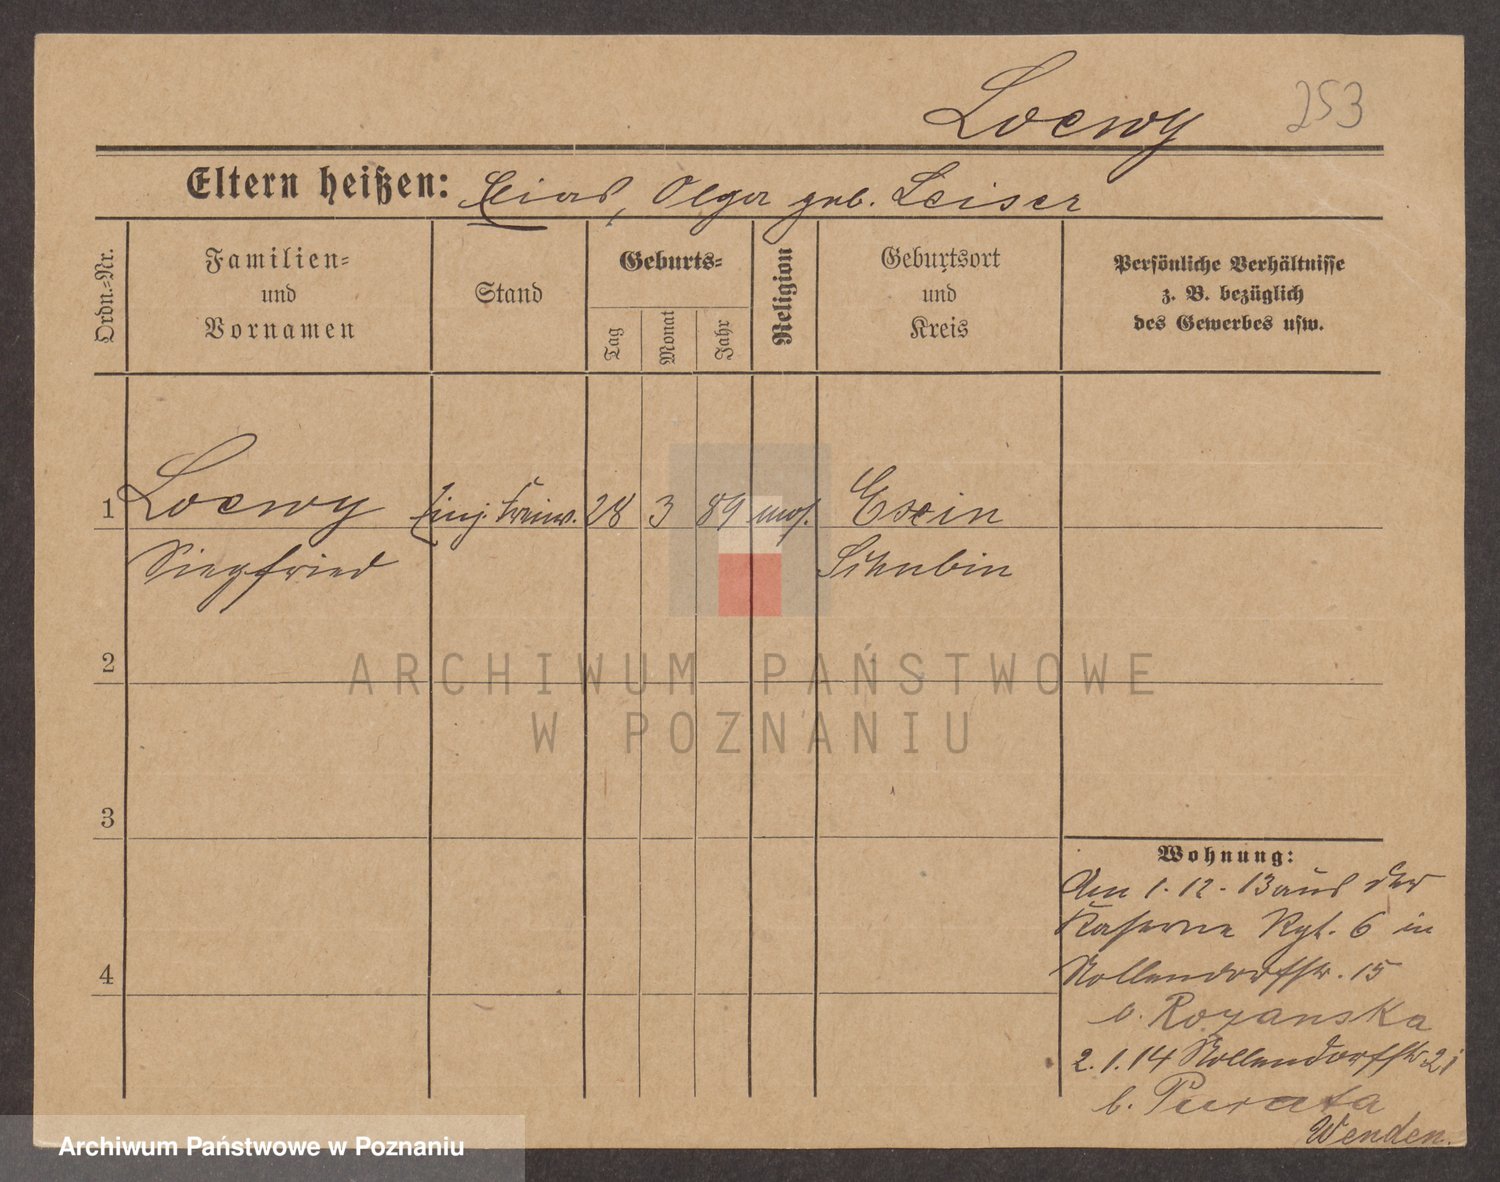 Loewy 253
Eltern heißen: Elias, Olga geb. Leiser
Ordn.-Nr.
Familien-
und
Vornamen
Stand
Geburts-
Tag
Monat
Jahr
Religion
Geburtsort
und
Kreis
Persönliche Verhältnisse
z. B. bezüglich
des Gewerbes usw.
1 Loewy Einj. Freiw. 28 3 89 mos. Exin
Siegfried Schubin
2
ARCHIWUM PAŃSTWOWE
W POZNANIU
3
Wohnung:
Am 1.12.13 aus der
Kaserne Rgt. 6 in
4
Nollendorfstr. 15
b. Rozanska
2.1.14 Nollendorfstr 21
b. Purata
Wenden.
Archiwum Państwowe w Poznaniu